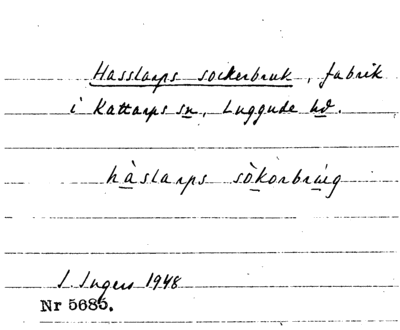 Hasslarps sockerbruk, fabrik
i Kattarps sn, Luggude hd.
hàslarps sòkorbrúig
I. Ingers 1948
Nr 5685.